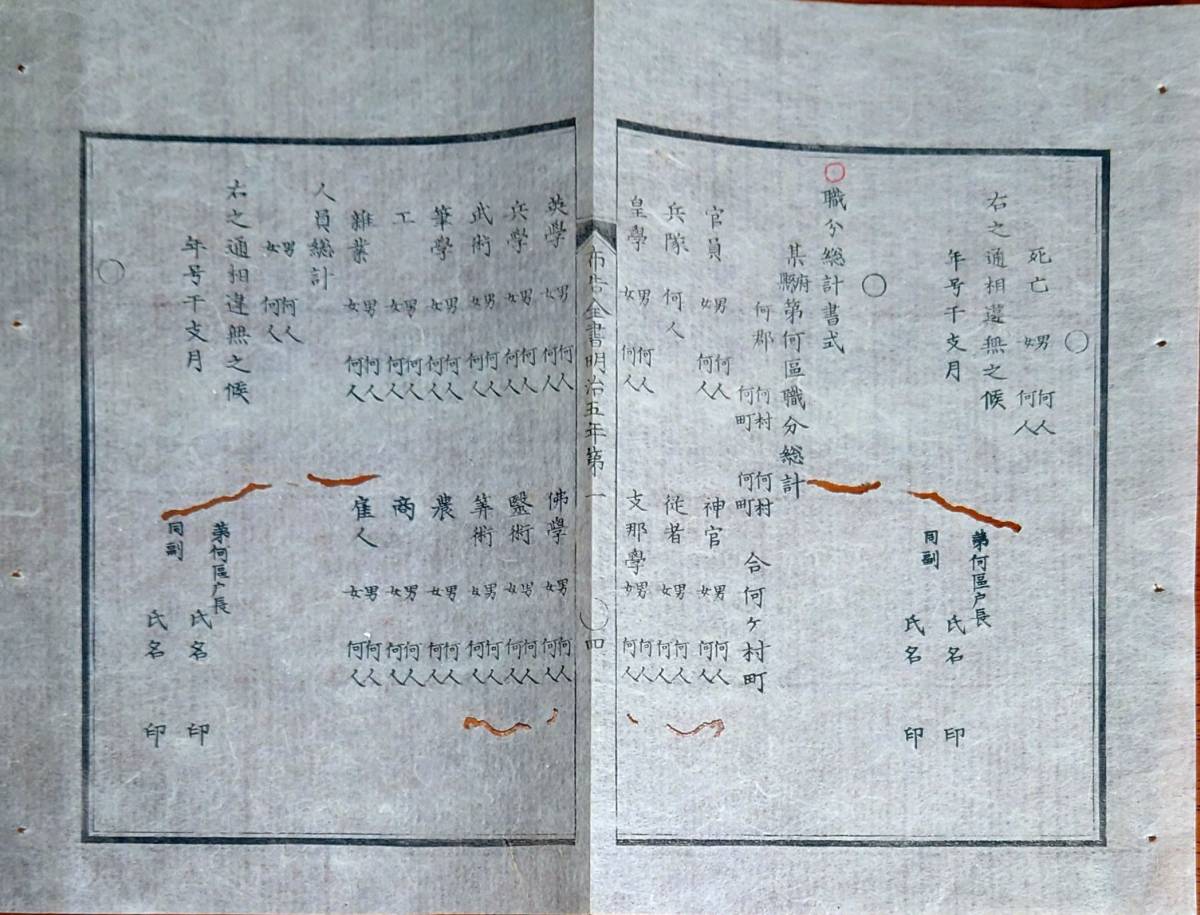 死亡 男女 何人何人
右之通相違無之候
年号干支月
第何區戸長 氏名 印
同副 氏名 印
職分総計書式
某府縣第何區職分総計
何郡 何村何町 何村何町 合何ヶ村町
官員 男女 何人何人 神官 男女 何人何人
兵隊 何人 従者 男女 何人何人
皇學 男女 何人何人 支那學 男女 何人何人
布告全書明治五年第一 四
英學 男女 何人何人 佛學 男女 何人何人
兵學 男女 何人何人 醫術 男女 何人何人
武術 男女 何人何人 筭術 男女 何人何人
筆學 男女 何人何人 農 男女 何人何人
工 男女 何人何人 商 男女 何人何人
雜業 男女 何人何人 雇人 男女 何人何人
人員総計
男女 何人何人
右之通相違無之候
年号干支月
第何區戸長 氏名 印
同副 氏名 印